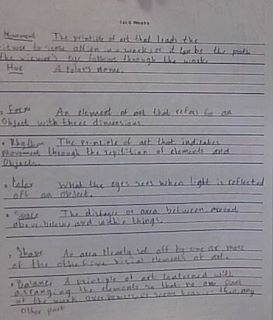 1st 6 Weeks
Movement The principle of art that leads the
viewer to sense action in a work, or it can be the path
the viewer's eye follows through the work.
Hue A color's name.
Form An element of art that refers to an
object with three dimensions.
Rhythm The principle of art that indicates
movement through the repitition of elements and
objects.
Color What the eyes sees when light is reflected
off an object.
Space The distance or area between, around,
above, below and within things.
Shape An area clearly set off by one or more
of the other visual elements of art.
Balance A principle of art concerned with
arranging the elements so that no one part
of the work overpowers or seems heavier than any
other part